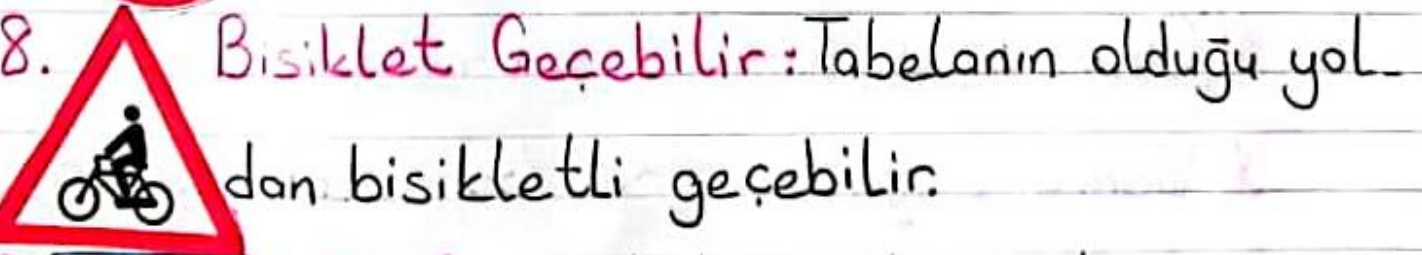 8. Bisiklet Geçebilir: Tabelanın olduğu yol-
dan bisikletli geçebilir.